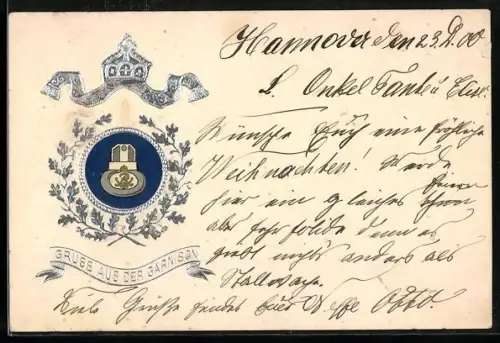 Hannover den 23. 12. 00
L. Onkel Tante u Elise
Wünsche Euch eine fröhliche
Weihnachten! Werde
hier ein gleiches feiern
aber sehr solide denn es
giebt nichts anders als
Stallwache.
Viele Grüße sendet Euer Neffe Otto.
GRUSS AUS DER GARNISON